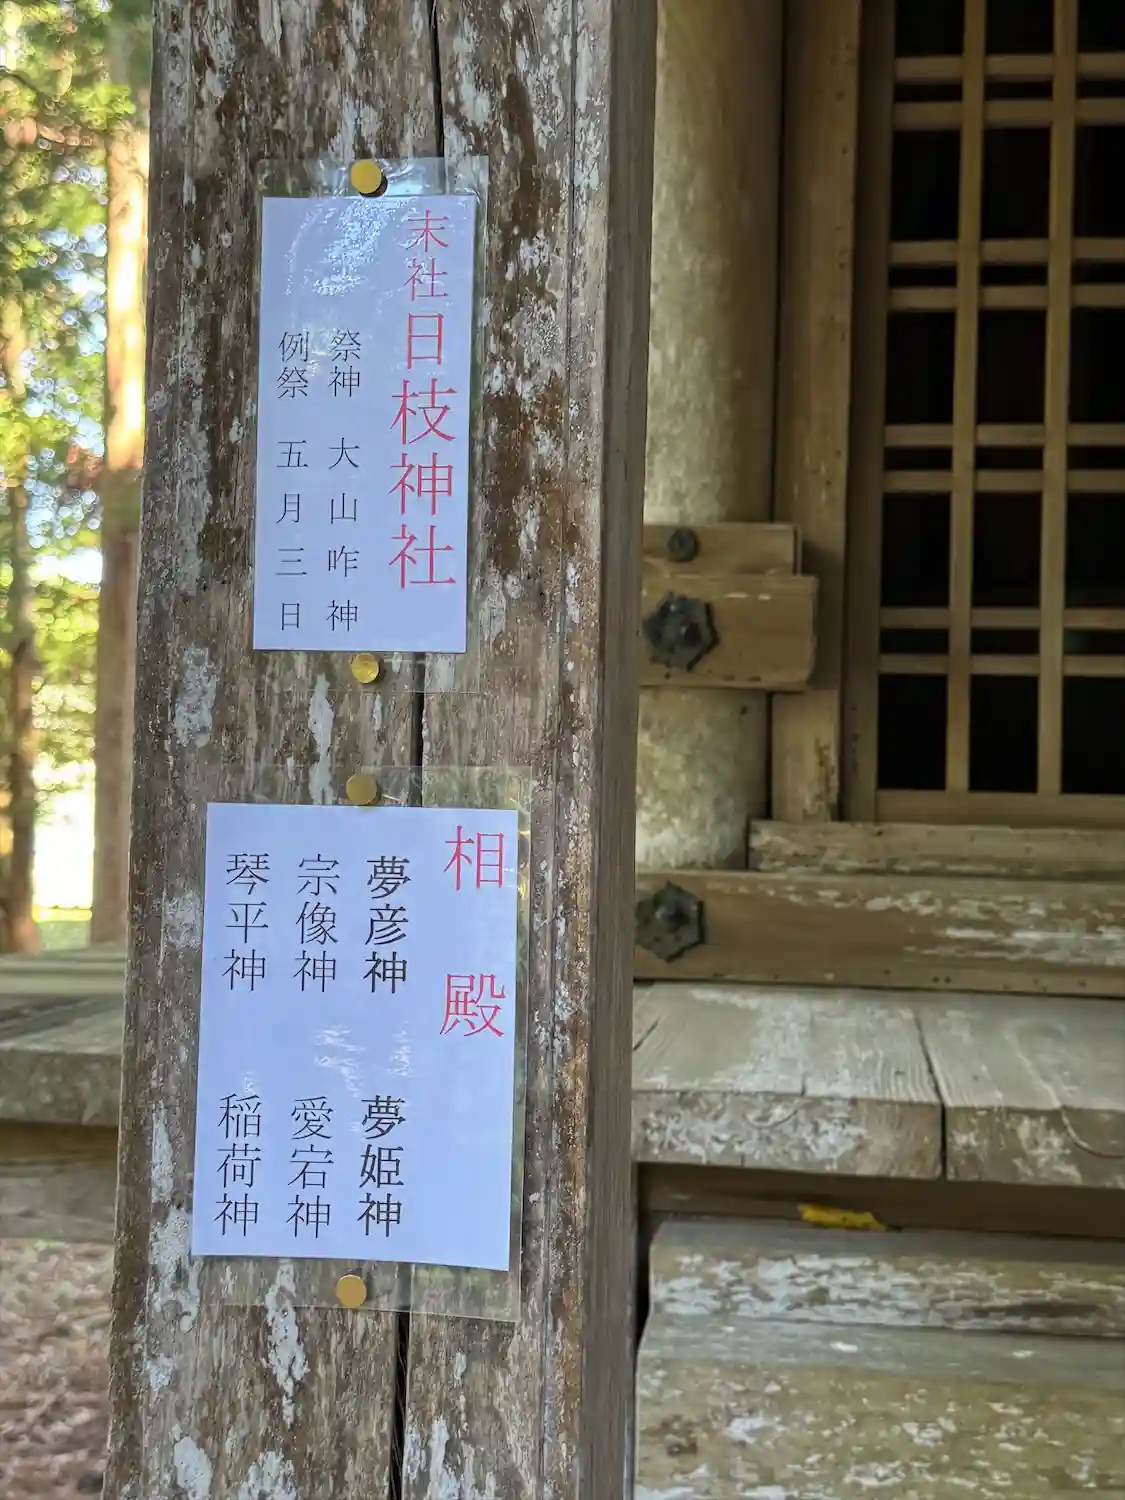 末社日枝神社
祭神 大山咋神
例祭 五月三日
相殿
夢彦神 夢姫神
宗像神 愛宕神
琴平神 稲荷神